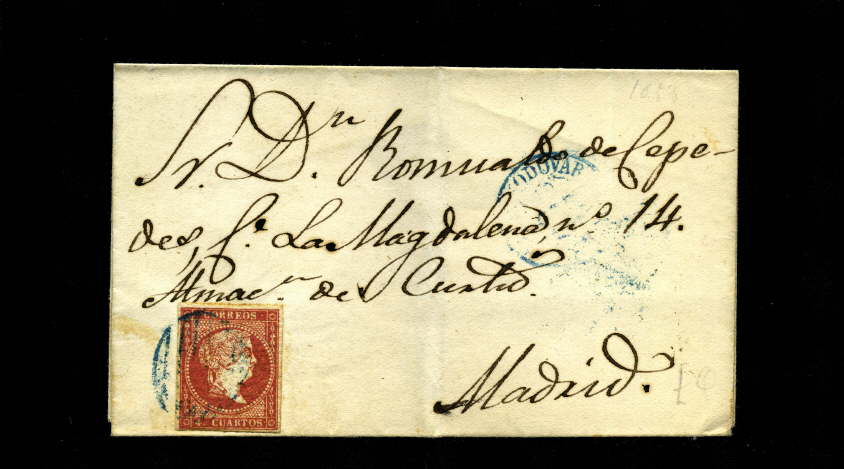 1858
Sr. Dn. Romualdo de Cepe-
des, Ce. La Magdalena, nº 14.
ODOVAR
Almacn. de Curtid.
Madrid.
CORREOS
4 CUARTOS